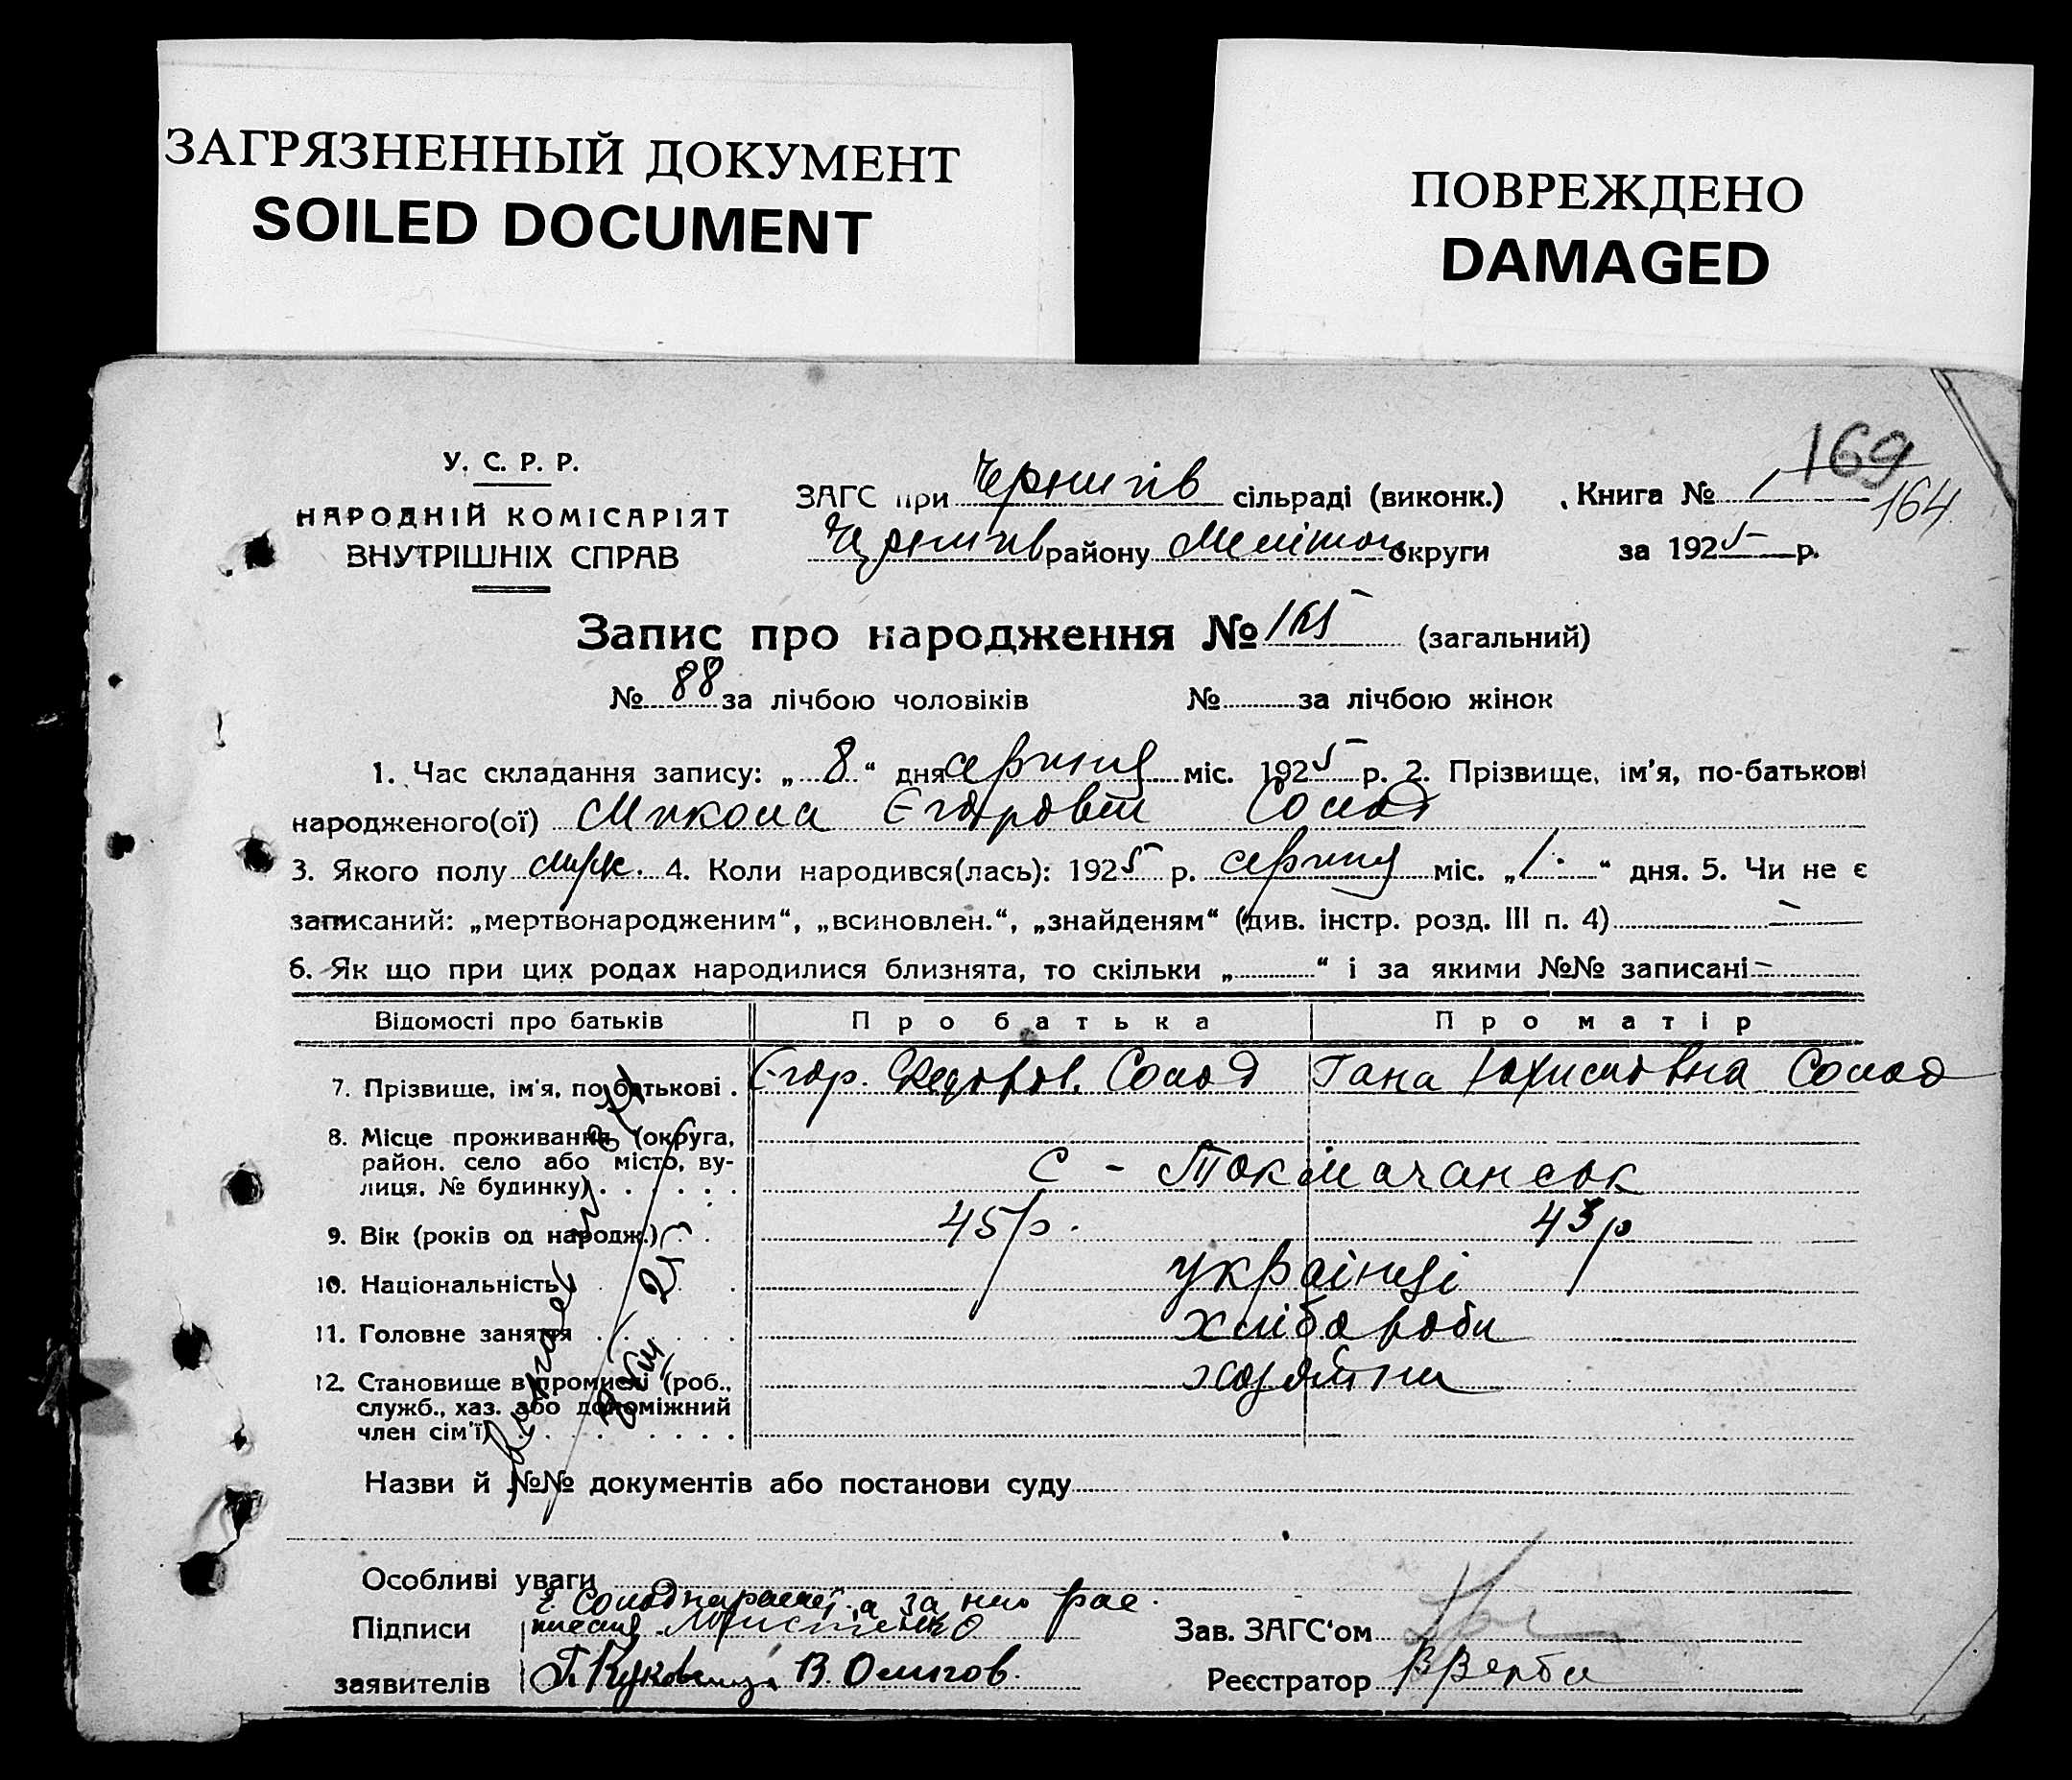 ЗАГРЯЗНЕННЫЙ ДОКУМЕНТ
SOILED DOCUMENT
ПОВРЕЖДЕНО
DAMAGED
169
164
У. С. Р. Р.
НАРОДНІЙ КОМІСАРІЯТ
ВНУТРІШНІХ СПРАВ
ЗАГС при Чернигів сільраді (виконк.) Книга № 1
Чернигів району Меліток округи за 1925 р.
Запис про народження № 165 (загальний)
№ 88 за лічбою чоловіків № за лічбою жінок
1. Час складання запису: „ 8 “ дня серпня міс. 1925 р. 2. Прізвище, ім'я, по-батькові
народженого(ої) Микола Єгоровіч Солод
3. Якого полу муж. 4. Коли народився(лась): 1925 р. серпня міс. „ 1 “ дня. 5. Чи не є
записаний: „мертвонародженим“, „всиновлен.“, „знайденям“ (див. інстр. розд. III п. 4) –
6. Як що при цих родах народилися близнята, то скільки „ “ і за якими №№ записані –
Відомості про батьків Про батька Про матір
7. Прізвище, ім'я, по батькові . Єгор. Федоров. Солод Гана Юхимовна Солод
8. Місце проживання (округа,
район, село або місто, ву-
лиця, № будинку) С - Токмачанськ
9. Вік (років од народж.) 45 р. 43 р
10. Національність українці
11. Головне заняття хлібороби
12. Становище в промислі (роб.,
служб., хаз. або допоміжний
член сім'ї) хозяйни
Назви й №№ документів або постанови суду
Особливі уваги
Підписи
заявителів В. Омигов.
Зав. ЗАГС'ом
Реєстратор В Верби